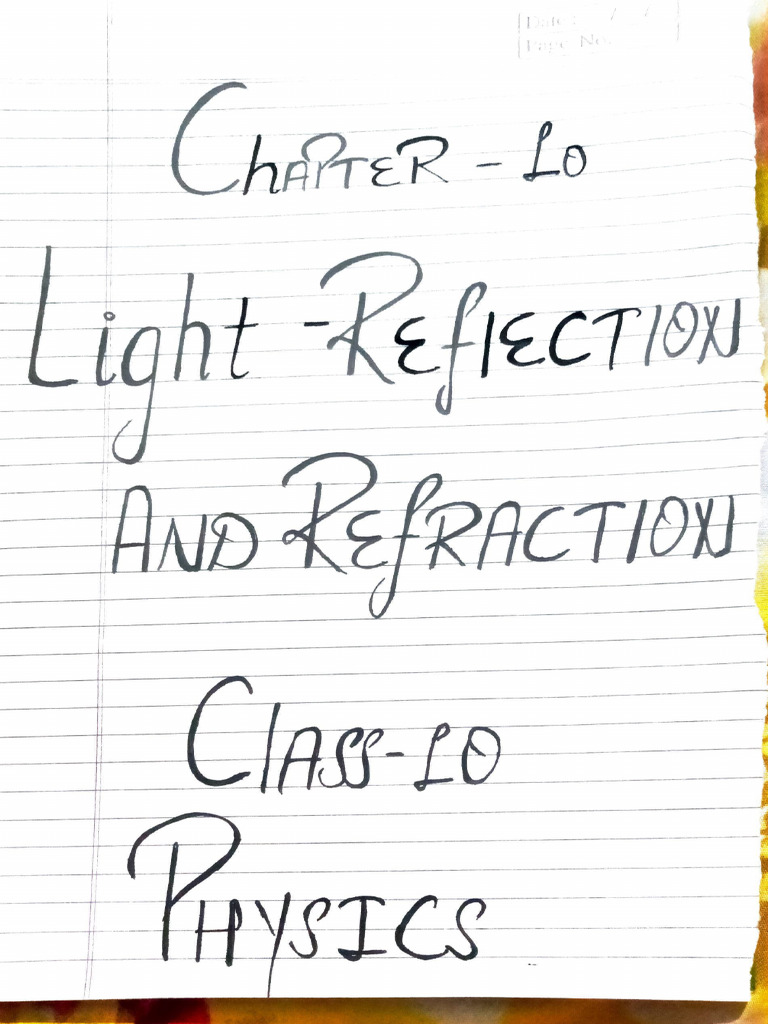 Date: / /
Page No.
Chapter - 10
Light - Reflection
And Refraction
Class - 10
Physics